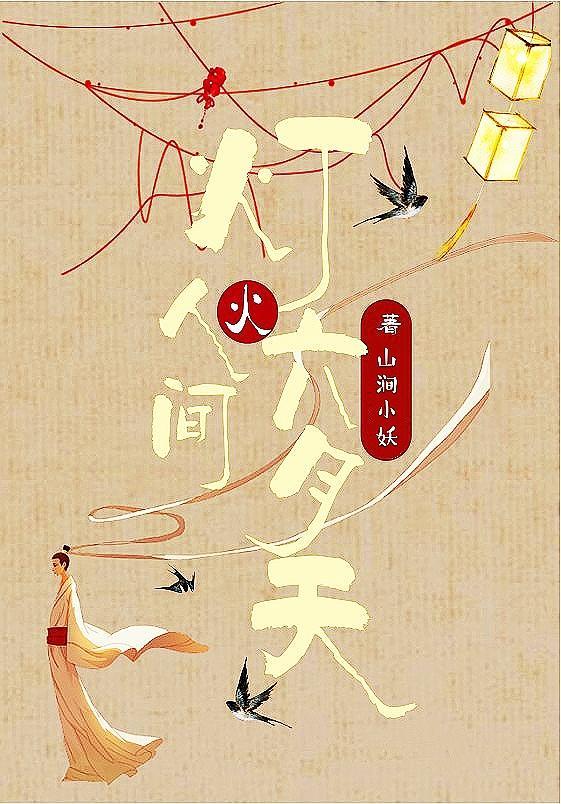 灯火
人间
六月天
著 山涧小妖